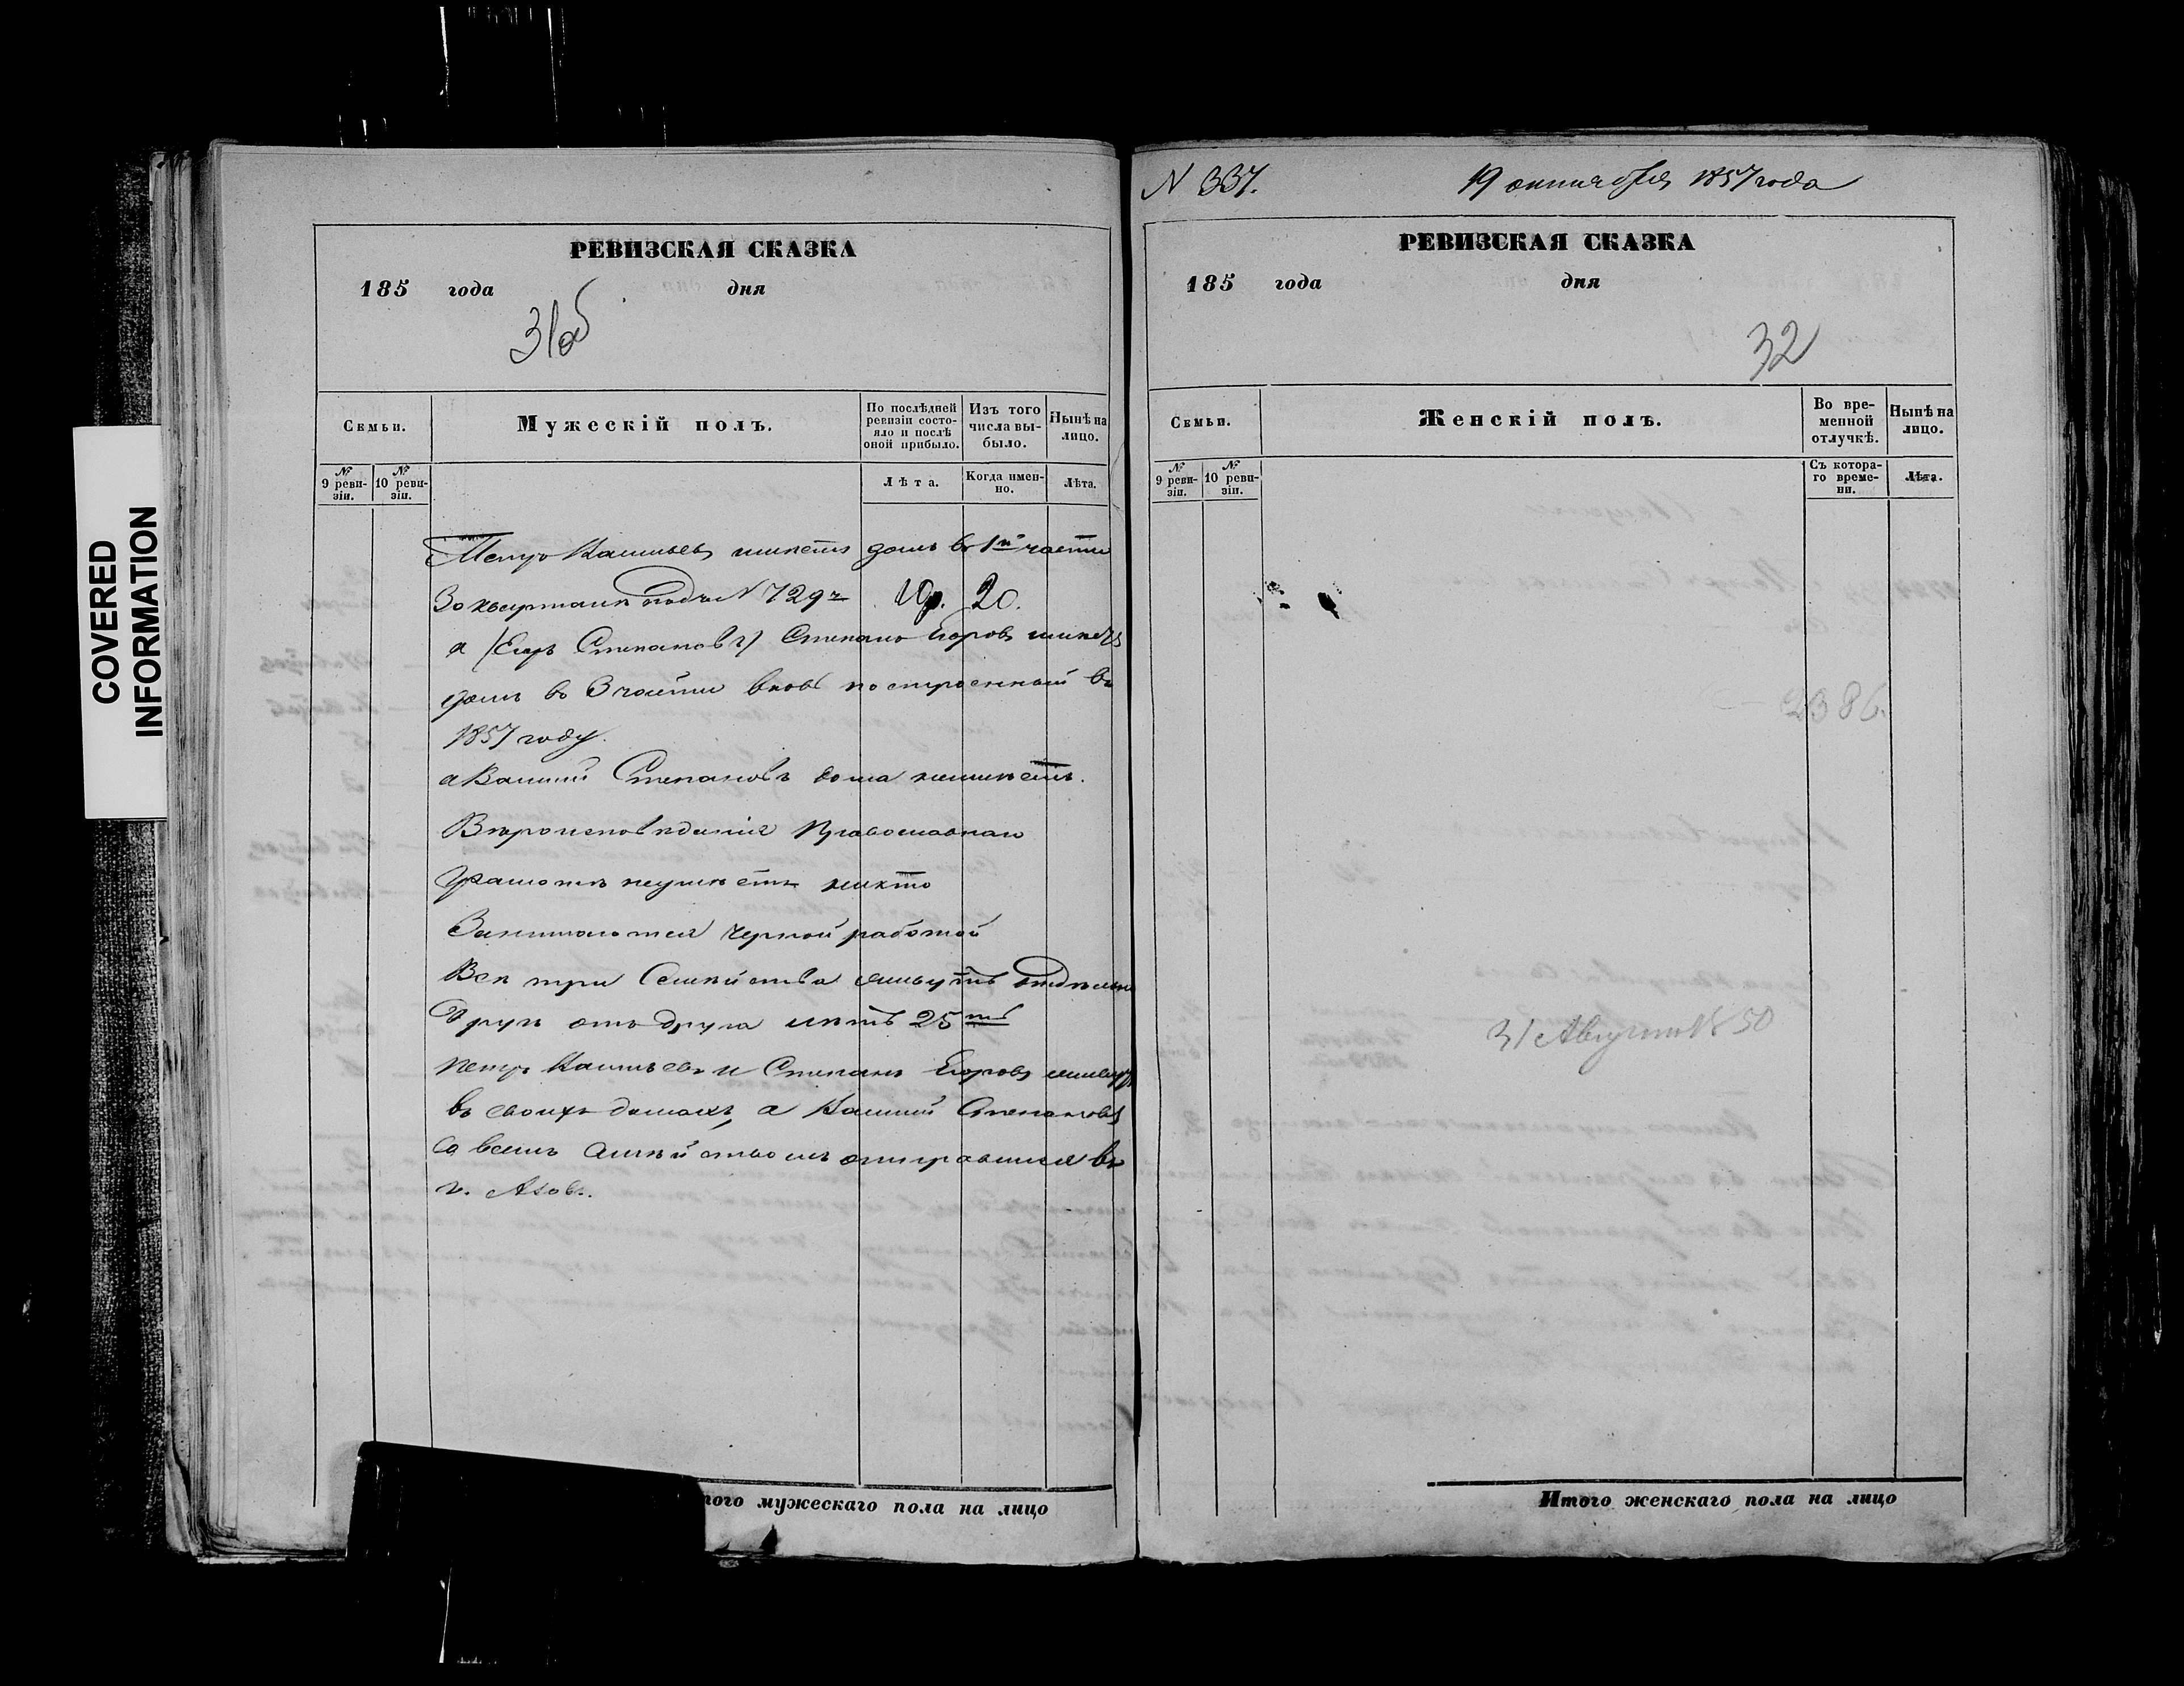 COVERED
INFORMATION
РЕВИЗСКАЯ СКАЗКА
185 года дня
31об
Семьи.
Мужескій полъ.
По послѣдней ревизіи состояло и послѣ оной прибыло.
Изъ того числа выбыло.
Нынѣ на лицо.
№ 9 ревизіи.
№ 10 ревизіи.
Лѣта.
Когда именно.
Лѣта.
Петръ Касмьевъ имѣетъ домъ въ 1й части
3о квартала подъ N 729м 10р. 20.
а (Егръ Степановъ) Степанъ Егоровъ имѣетъ
домъ въ 3 части вновь построенный въ
1857 году.
а Касмий Степановъ дома неимѣетъ.
Вѣроисповѣданія Православнаго
Грамотѣ неумѣетъ никто
Занимаются черной работой
Всѣ три Семѣйства живутъ отдѣльно
Другъ отъ друга лѣтъ 25ть
Петръ Касмьевъ и Степанъ Егоровъ живутъ
въ своихъ домахъ, а Касмий Степановъ
со всемъ семѣйствомъ отправился въ
г. Азовъ.
того мужескаго пола на лицо
N 337. 19 октября 1857 года
РЕВИЗСКАЯ СКАЗКА
185 года дня
32
Семьи.
Женскій полъ.
Во временной отлучкѣ.
Нынѣ на лицо.
№ 9 ревизіи.
№ 10 ревизіи.
Съ котораго времени.
Лѣта.
2386.
31 Августа 1850
Итого женскаго пола на лицо